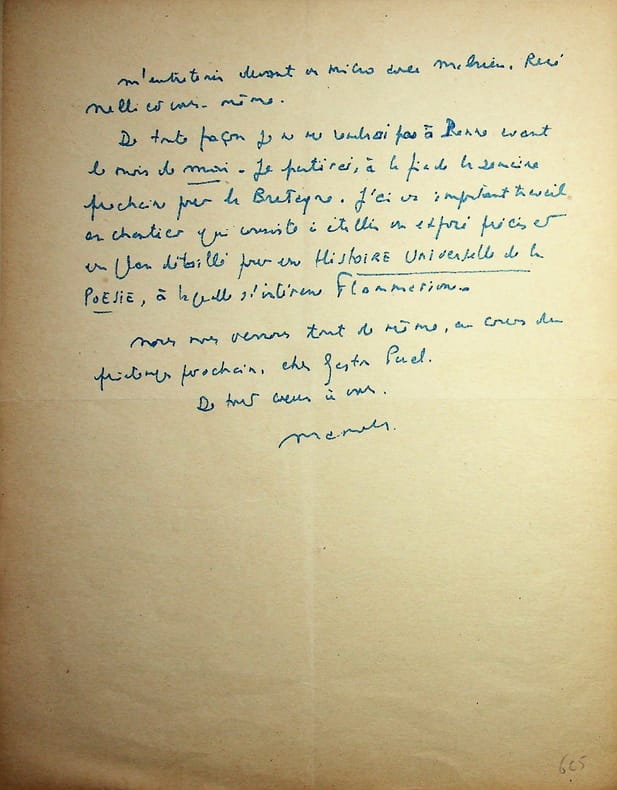 m'entretenir devant un micro avec mehren. René
nelli et vous-même.
De toute façon je ne me rendrai pas à avant
le mois de mai. Je partirai, à la fin de la semaine
prochaine pour la Bretagne. J'ai un important travail
en chantier qui consiste à établir un exposé précis et
un plan détaillé pour une HISTOIRE UNIVERSELLE de la
POESIE, à laquelle s'intéresse Flammarion.
nous nous verrons tout de même, au cours du
printemps prochain, cher Gaston Puel.
De tout cœur à vous.
605